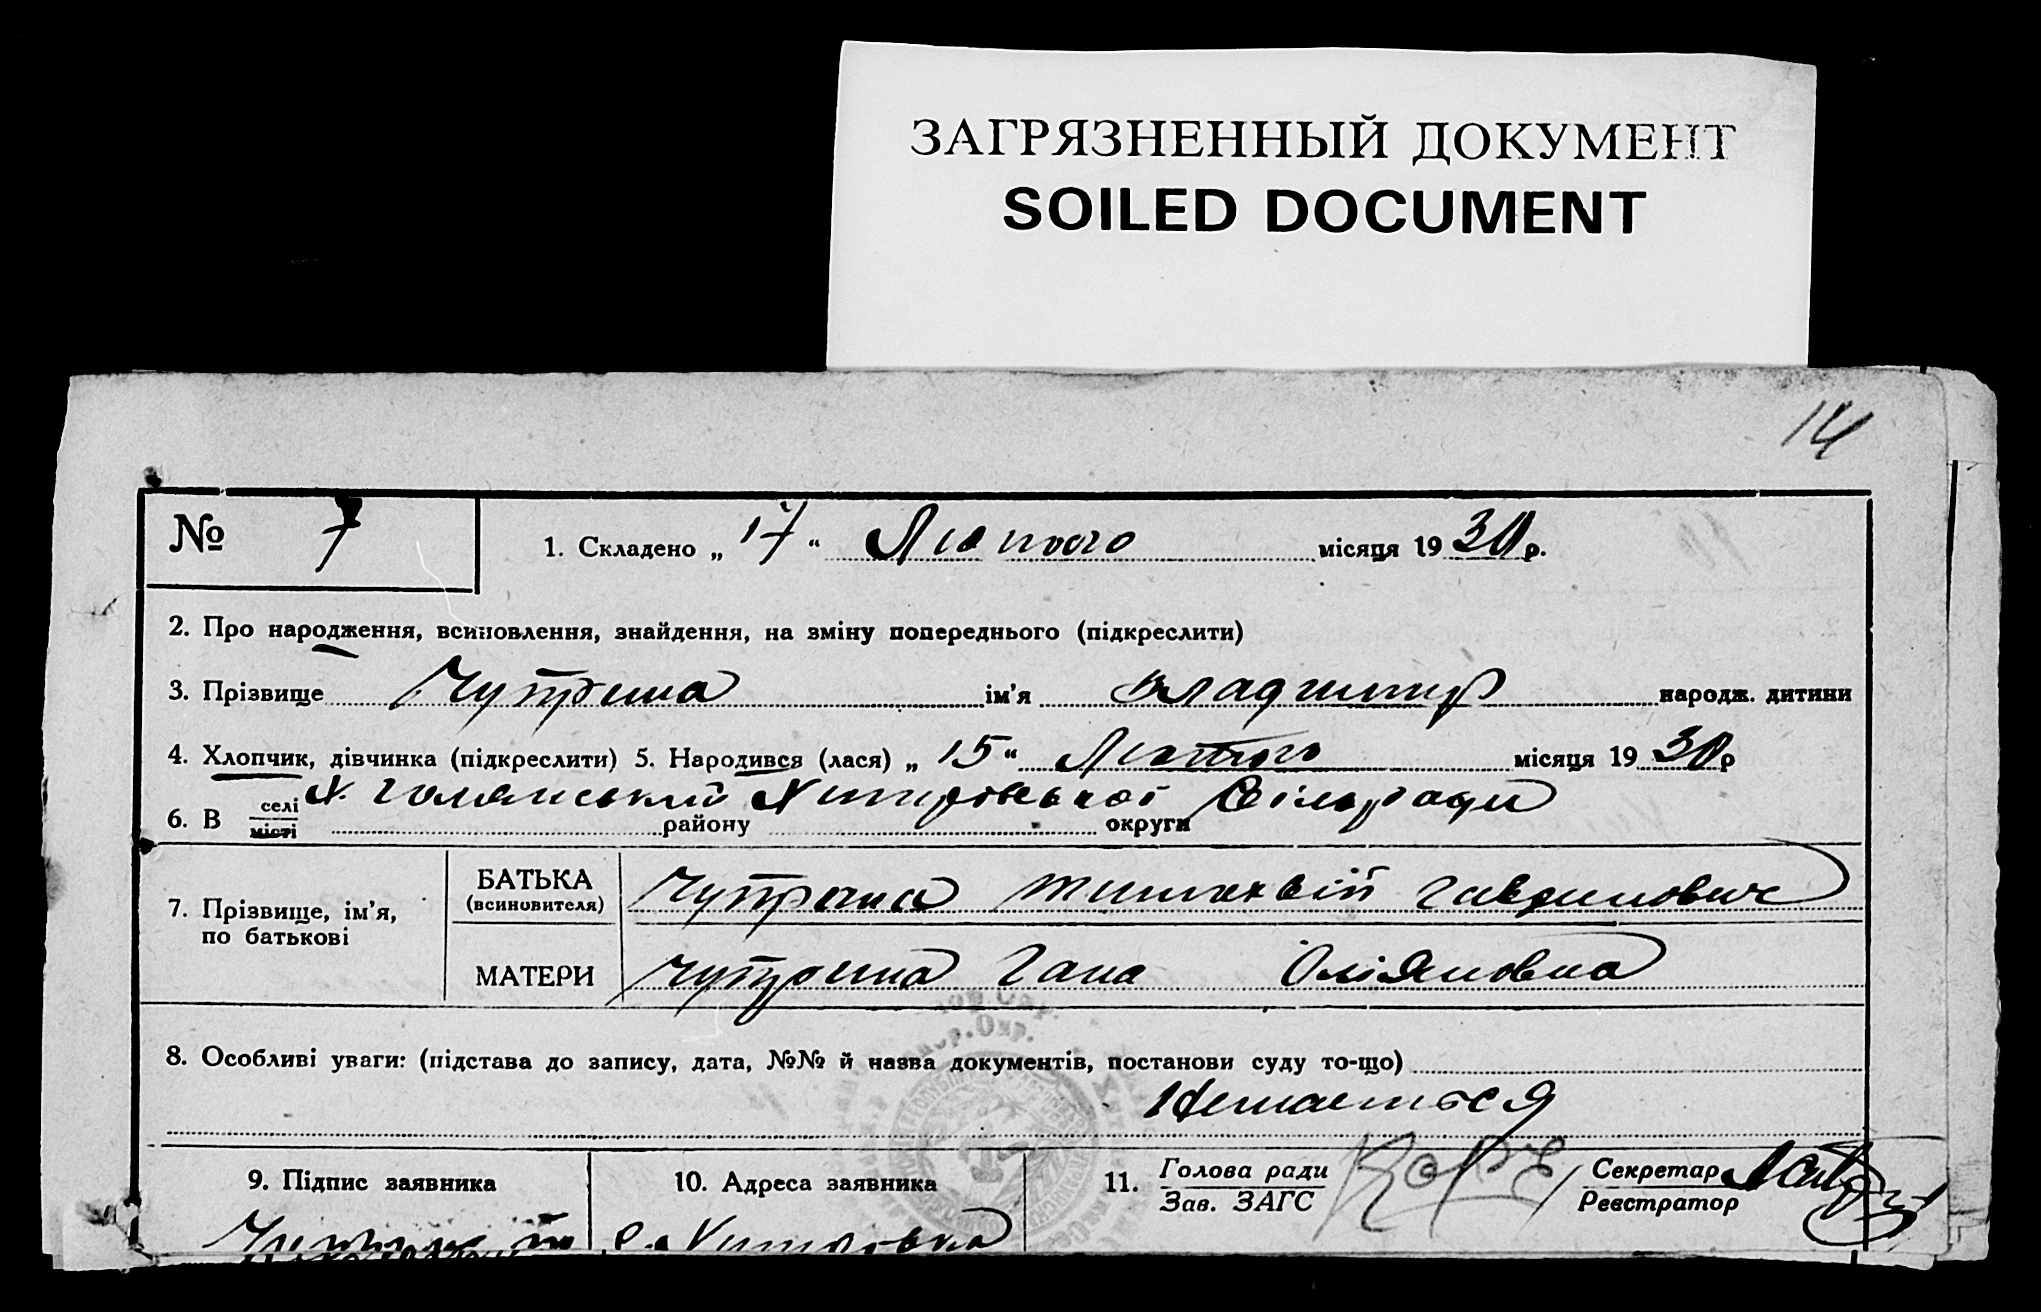 ЗАГРЯЗНЕННЫЙ ДОКУМЕНТ
SOILED DOCUMENT
14
№ 7
1. Складено „ 17 “ Лютого місяця 1930 р.
2. Про народження, всиновлення, знайдення, на зміну попереднього (підкреслити)
3. Прізвище Чуприна ім’я Владимир народж. дитини
4. Хлопчик, дівчинка (підкреслити) 5. Народився (лася) „ 15 “ Лютого місяця 1930 р
6. В селі місті району округи Сільради
7. Прізвище, ім’я, по батькові
БАТЬКА (всиновителя) Чуприна Гаврилович
МАТЕРИ Чуприна Гана
8. Особливі уваги: (підстава до запису, дата, №№ й назва документів, постанови суду то-що)
Немаеться
9. Підпис заявника
10. Адреса заявника
11. Голова ради
Зав. ЗАГС
Секретар
Реєстратор